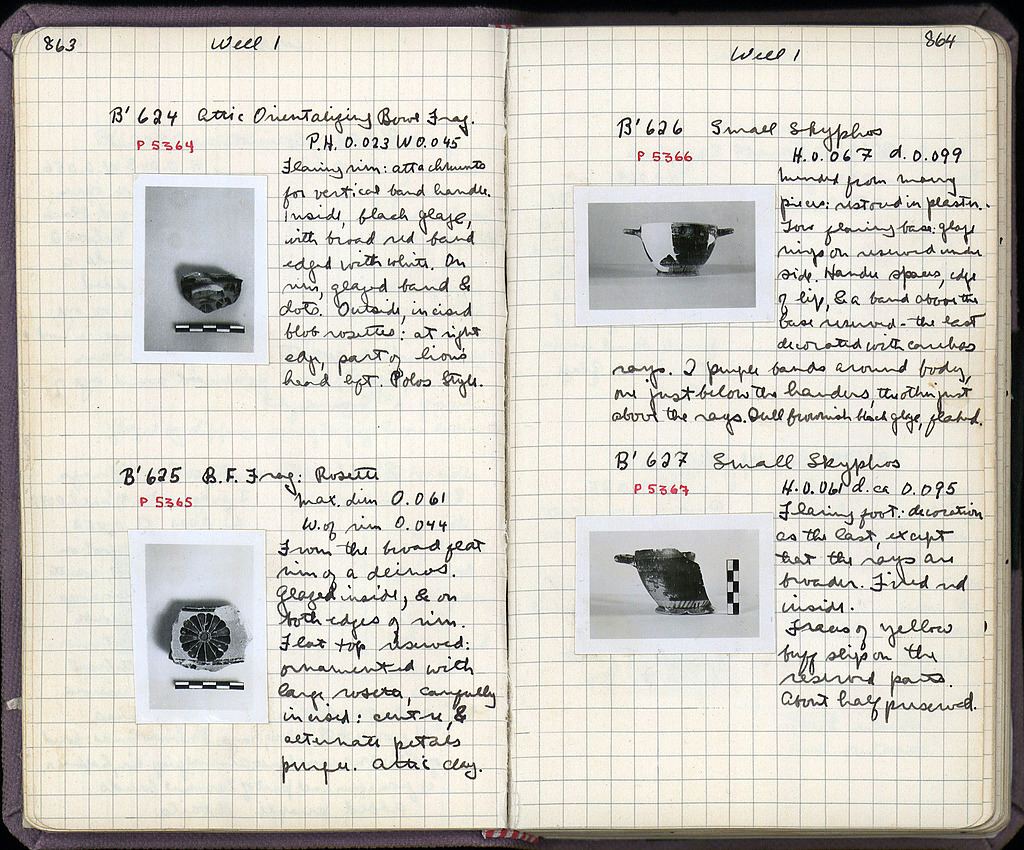 863
Well 1
B' 624 Attic Orientalizing Bowl Frag.
P 5364
P.H. 0.023 W 0.045
Flaring rim: attachments
for vertical band handle.
Inside, black glaze,
with broad red band
edged with white. On
rim, glazed band &
dots. Outside, incised
blob rosettes: at right
edge, part of lion's
head left. Polos Style.
B' 625 B.F. Frag: Rosette
P 5365
Max. dim 0.061
W. of rim 0.044
From the broad flat
rim of a deinos.
Glazed inside, & on
both edges of rim.
Flat top reserved:
ornamented with
large rosette, carefully
incised: centre, &
alternate petals
purple. Attic clay.
864
Well 1
B' 626 Small Skyphos
P 5366
H. 0.067 d. 0.099
Mended from many
pieces: restored in plaster.
Low flaring base: glaze
rings on reserved under
side. Handle spaces, edge
of lip, & a band above the
base reserved - the last
decorated with careless
rays. 2 purple bands around body,
one just below the handles, the other just
above the rays. Dull brownish black glaze, flaked.
B' 627 Small Skyphos
P 5367
H. 0.061 d. ca 0.095
Flaring foot: decoration
as the last, except
that the rays are
broader. Fired red
inside.
Traces of yellow
buff slip on the
reserved parts.
About half preserved.